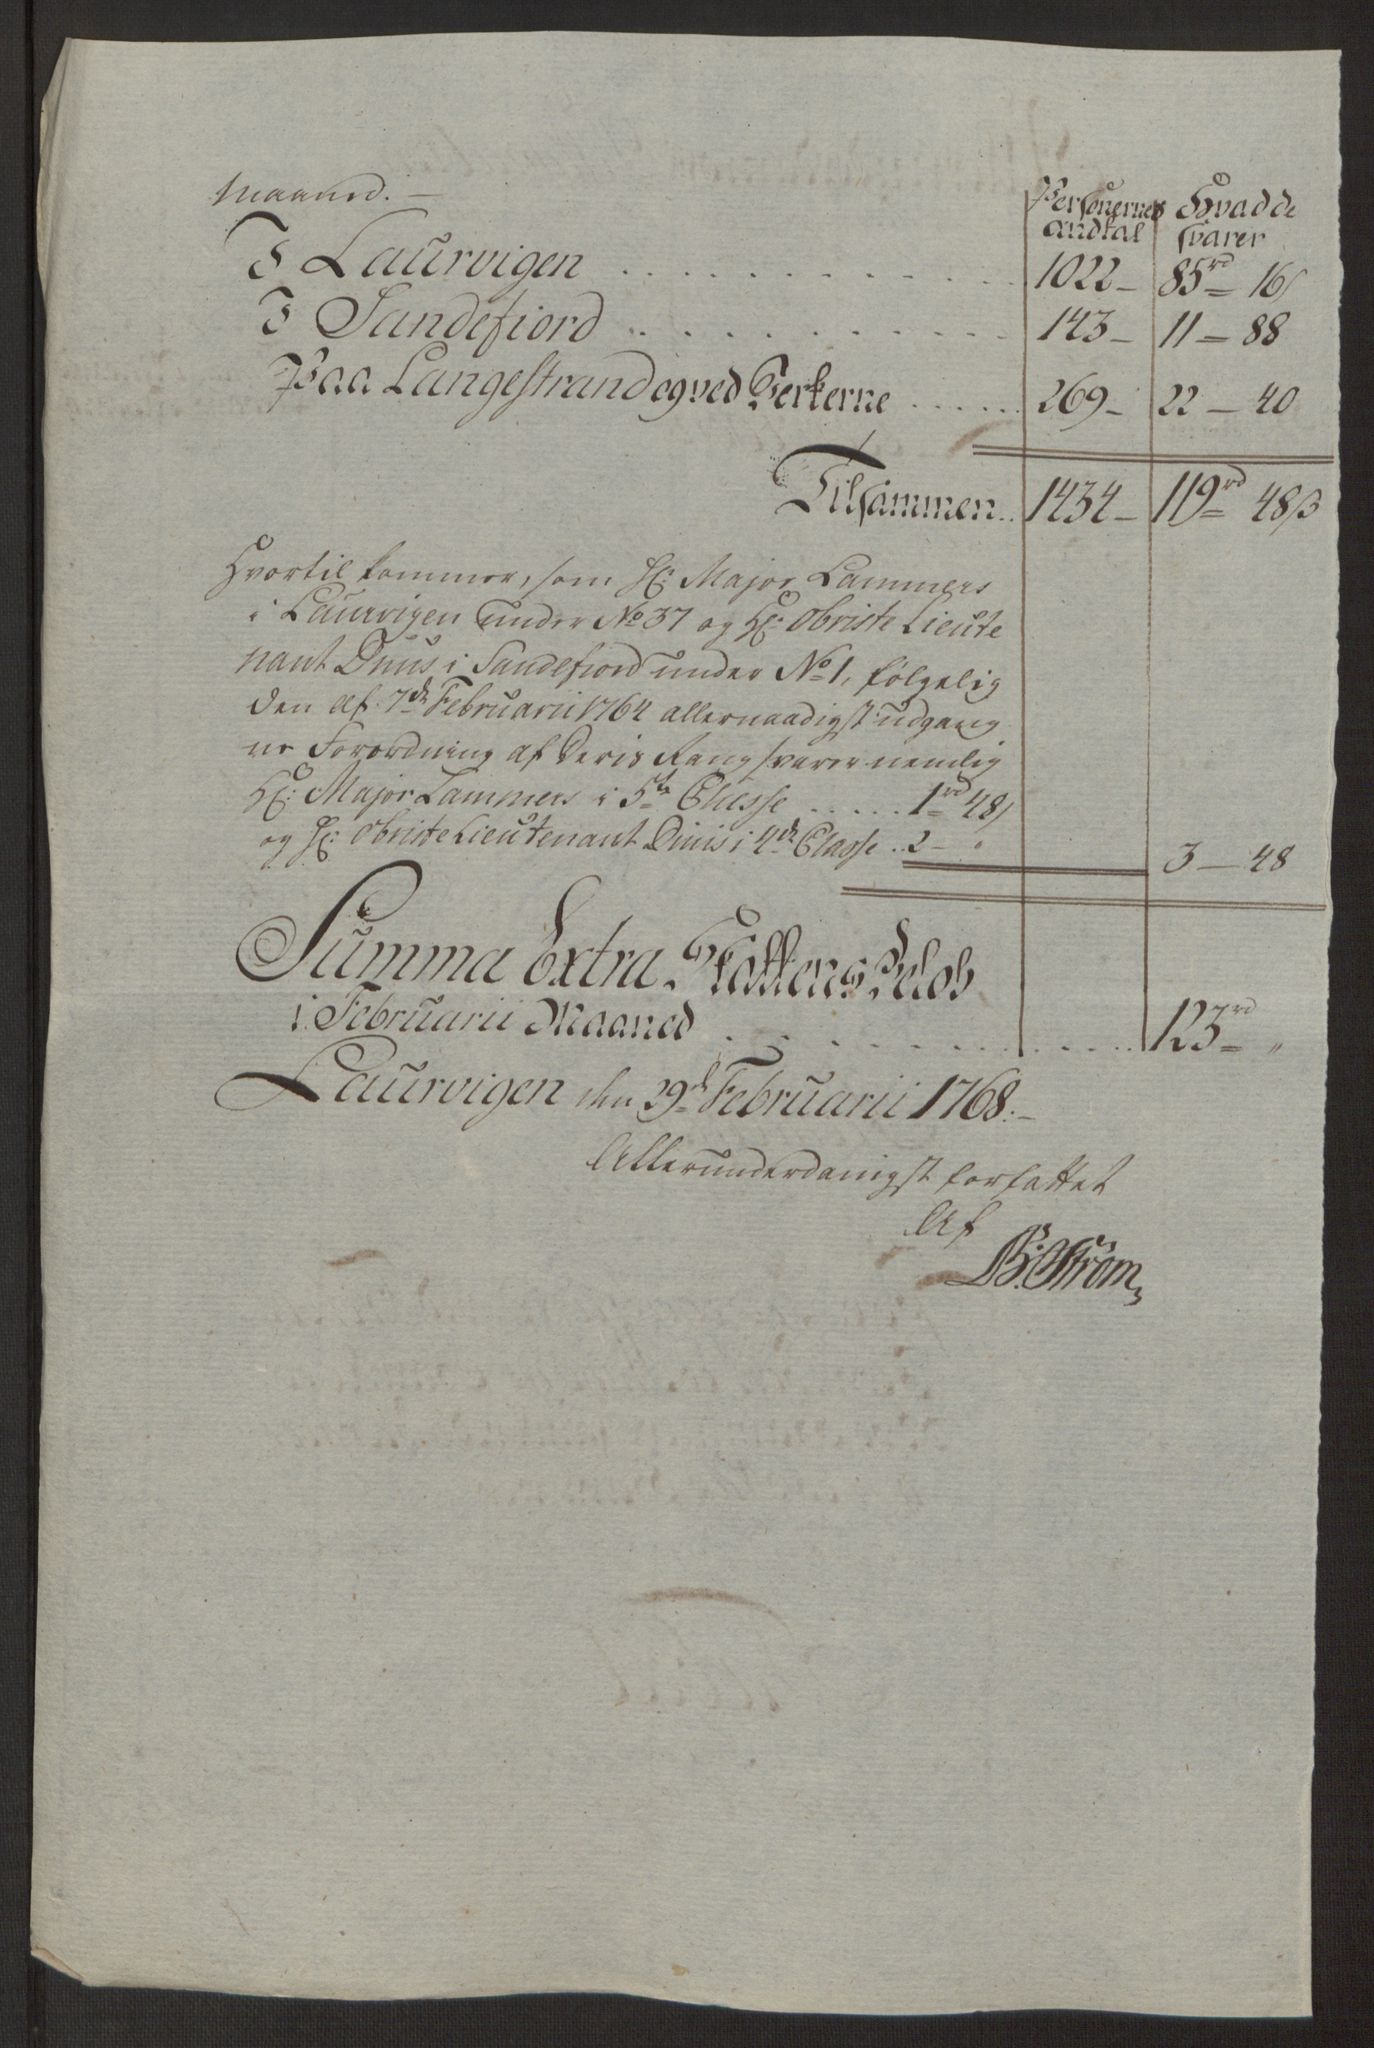 Maaned. —
Personernes Hvad de
andtal svarer
I Laurvigen . . . . . . . . . . 1022 — 85 rd 16 s
I Sandefiord . . . . . . . . . . 143 — 11 — 88
Paa Langestrand og ved Verkerne . . . . . . 269 — 22 — 40
Tilsammen . . 1434 — 119 rd 48 ß
Hvortil kommer, som Hr: Major Lammers
i Laurvigen under No 37 og Hr: Obriste Lieute
nant Duus i Sandefiord under No 1, følgelig
den af 7de Februarii 1764 allernaadigst udgang
ne Forordning af deris Rang svarer nemlig
Hr: Major Lammers i 5te Classe . . . . . . 1 rd 48 s
og Hr: Obriste Lieutenant Duus i 4de Classe . . 2 — " 3 — 48
Summa Extra Skattens Beløb
i Februarii Maaned . . . . . . . . . . 123 rd "
Laurvigen den 29de Februarii 1768. —
Allerunderdanigst forfattet
Af
B: Strøm